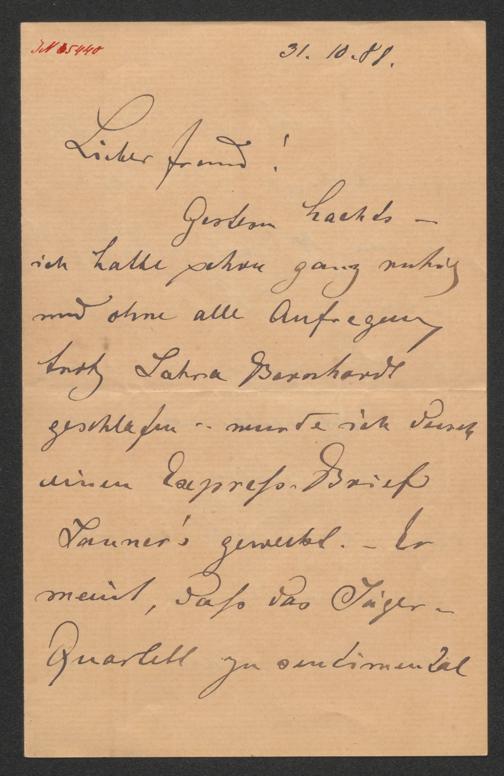 31. 10. 88.
Lieber Freund!
Gestern Nachts –
ich hatte schon ganz ruhig
und ohne alle Aufregung
trotz Sahra Bernhardt
geschlafen – wurde ich durch
einen Expreß-Brief
Jauner's geweckt. – Er
meint, daß das Jäger-
Quartett zu sentimental